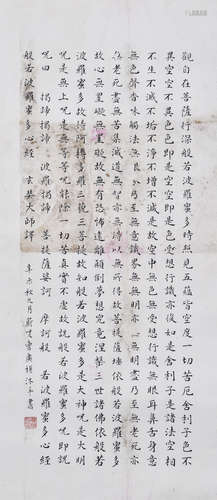 觀自在菩薩行深般若波羅蜜多時照見五蘊皆空度一切苦厄舍利子色不
異空空不異色色即是空空即是色受想行識亦復如是舍利子是諸法空相
不生不滅不垢不淨不增不減是故空中無色無受想行識無眼耳鼻舌身意
無色聲香味觸法無眼界乃至無意識界無無明亦無無明盡乃至無老死亦
無老死盡無苦集滅道無智亦無得以無所得故菩提薩埵依般若波羅蜜多
故心無罣礙無罣礙故無有恐怖遠離顛倒夢想究竟涅槃三世諸佛依般若
波羅蜜多故得阿耨多羅三藐三菩提故知般若波羅蜜多是大神咒是大明
咒是無上咒是無等等咒能除一切苦真實不虛故說般若波羅蜜多咒即說
咒曰 揭諦揭諦 波羅揭諦 菩提薩婆訶 摩訶般若波羅蜜多心經
般若波羅蜜多心經 玄奘大師譯 辛未秋九月 沐手書